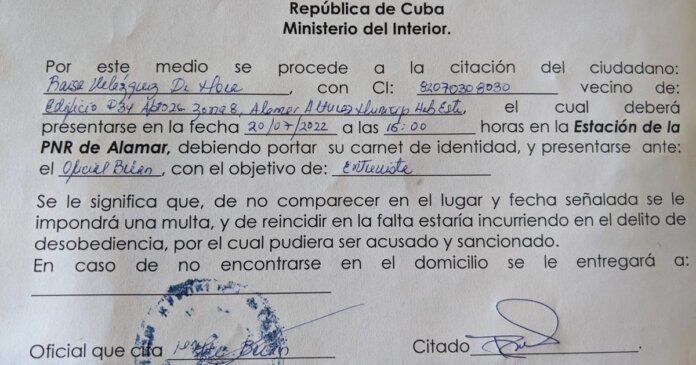 República de Cuba
Ministerio del Interior.
Por este medio se procede a la citación del ciudadano:
Velázquez De , con CI: 82070308030 vecino de:
Edificio D34 Apto26 zona 8, Alamar Hab Este, el cual deberá
presentarse en la fecha 20/07/2022 a las 16:00 horas en la Estación de la
PNR de Alamar, debiendo portar su carnet de identidad, y presentarse ante:
el Oficial Brian, con el objetivo de: Entrevista
Se le significa que, de no comparecer en el lugar y fecha señalada se le
impondrá una multa, y de reincidir en la falta estaría incurriendo en el delito de
desobediencia, por el cual pudiera ser acusado y sancionado.
En caso de no encontrarse en el domicilio se le entregará a:
Oficial que cita Brian Citado